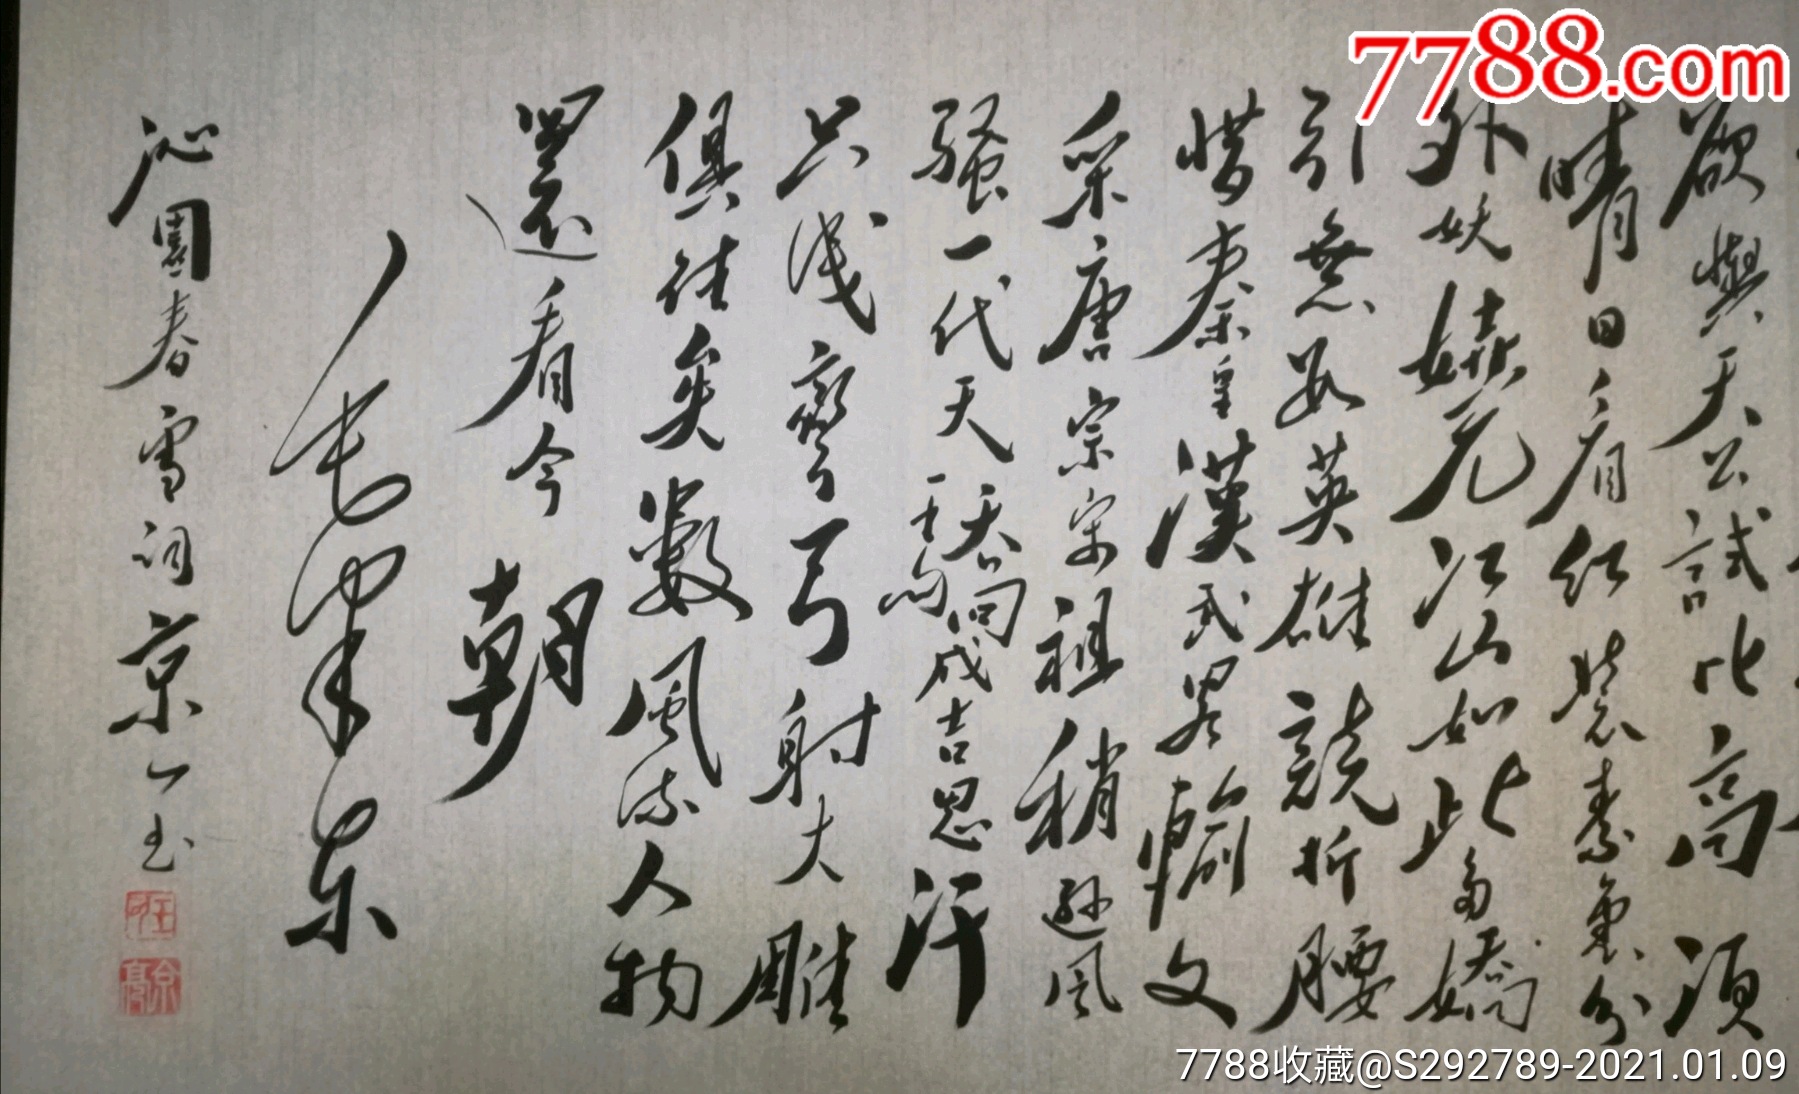 7788.com
欲與天公試比高須
晴日看红装素裹分
外妖嬈江山如此多嬌
引無数英雄競折腰
惜秦皇漢武畧輸文
采唐宗宋祖稍遜風
骚一代天驕成吉思汗
只识彎弓射大雕
俱往矣數風流人物
還看今朝
毛澤东
沁園春雪词京一玉
7788收藏@S292789-2021.01.09